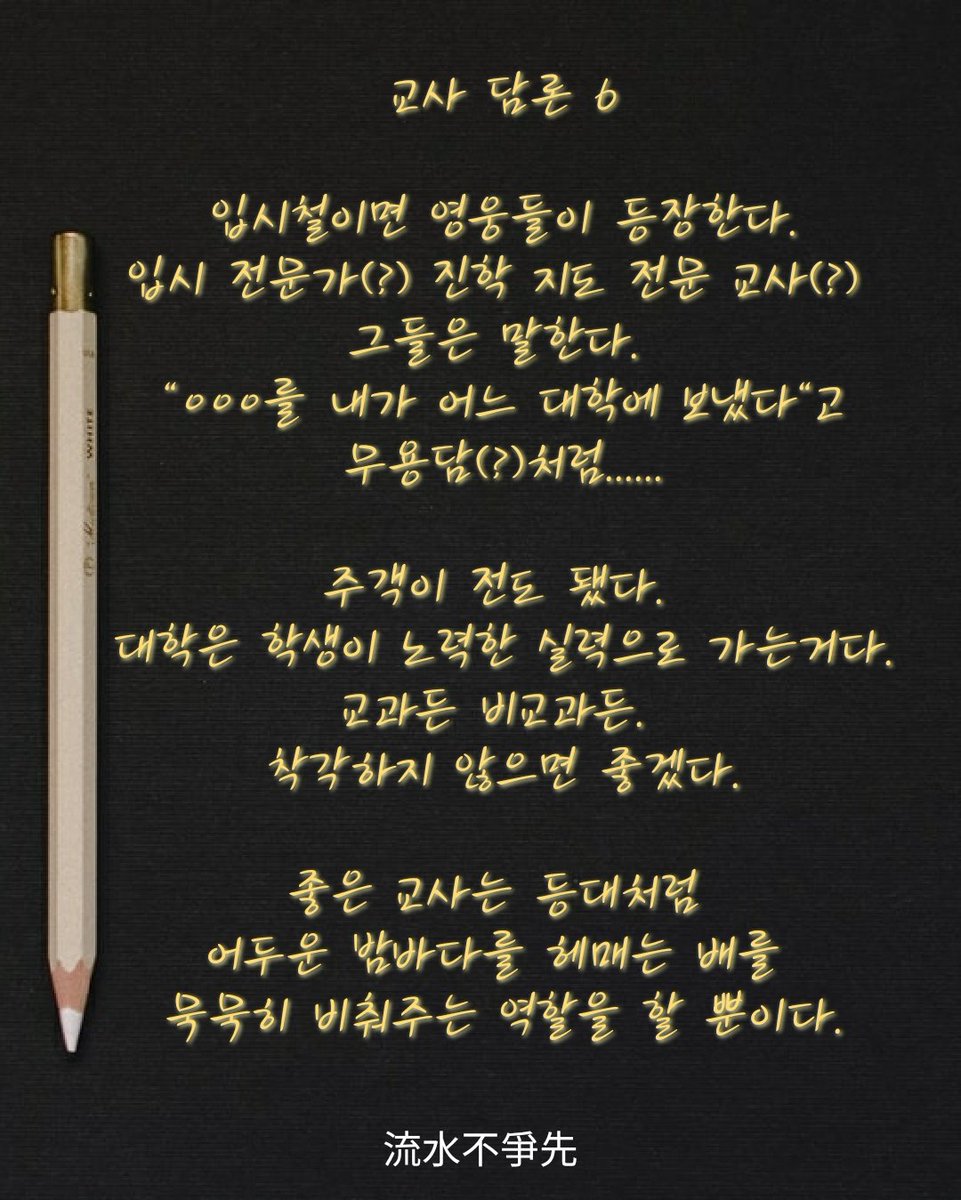 교사 담론 6
입시철이면 영웅들이 등장한다.
입시 전문가(?) 진학 지도 전문 교사(?)
그들은 말한다.
“ㅇㅇㅇ를 내가 어느 대학에 보냈다“고
무용담(?)처럼......
주객이 전도 됐다.
대학은 학생이 노력한 실력으로 가는거다.
교과든 비교과든.
착각하지 않으면 좋겠다.
좋은 교사는 등대처럼
어두운 밤바다를 헤매는 배를
묵묵히 비춰주는 역할을 할 뿐이다.
流水不爭先
WHITE